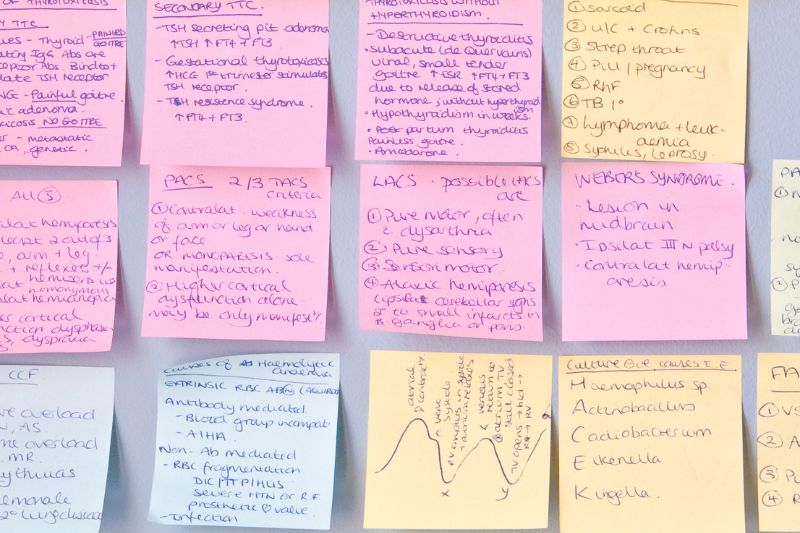 OF THYROTOXICOSIS
Y TTC
ues - Thyroid - PAINLESS
GOITRE
ating IgG Abs are
eptor Abs. Bind to +
late TSH receptor
NG - Painful goitre
ic adenoma.
icosis NO GOITRE
er - metastatic
CA, genetic.
SECONDARY TTC
- TSH secreting pit adenoma
↑TSH ↑FT4 + FT3
- Gestational thyrotoxicosis
↑HCG 1st trimester stimulates
TSH receptor.
- TSH resistence syndrome.
↑FT4 + FT3.
THYROTOXICOSIS WITHOUT
HYPERTHYROIDISM.
- Destructive thyroiditis
- Subacute (de Quervains)
viral, small tender
goitre ↑ESR ↑FT4+FT3
due to release of stored
hormone; without hyperthyroid
ism
- Hypothyroidism in weeks.
- Post partum thyroiditis
Painless goitre.
- Amiodarone.
① Sarcoid
② U/C + Crohns
③ Strep throat
④ Pill / pregnancy
⑤ RhF
⑥ TB 1°
⑦ Lymphoma + leuk-
aemia
⑧ Syphilis, leprosy.
All ③
ilat hemiparesis
least 2 out of 3
, arm + leg.
+ reflexes +/-
homonymous
at hemianopia
er cortical
nction dysphasia
s, dyspraxia
PACS 2/3 TACS
criteria
① Contralat. weakness
of arm or leg or hand
or face
OR MONOPARESIS sole
manifestation.
② Higher cortical
dysfunction alone -
may be only manifest
LACS - possible LACS
are
① Pure motor, often
c dysarthria
② Pure sensory
③ Sensorimotor
④ Ataxic hemiparesis
Ipsilat cerebellar signs
2° to small infarcts in
B. ganglia or pons.
WEBER'S SYNDROME.
- Lesion in
midbrain
- Ipsilat III N palsy
- Contralat hemip
aresis
PA
①
②
CCF
re overload
N, AS
me overload
MR
ythmias
lmonale
2° lung disease
Causes of Haemolytic
anaemia
EXTRINSIC RBC ABN (ACQUIRED)
Antibody mediated
- Blood group incompat
- AIHA
Non-Ab mediated
- RBC fragmentation
DIC/TTP/HUS
severe HTN or RF
prosthetic ♡ valve.
- Infection
atrial
contract
vent
systole
venous
return to
atrium TV
still closed
TV opens
RA → RV
x
y
Culture -ve causes I.E
Haemophilus sp.
Actinobacillus
Cardiobacterium
Eikenella
Kingella.
FA
① VS
② A
③ Pu
④ R